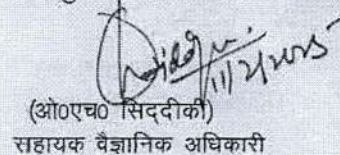 (ओ०एच० सिद्दीकी)
सहायक वैज्ञानिक अधिकारी